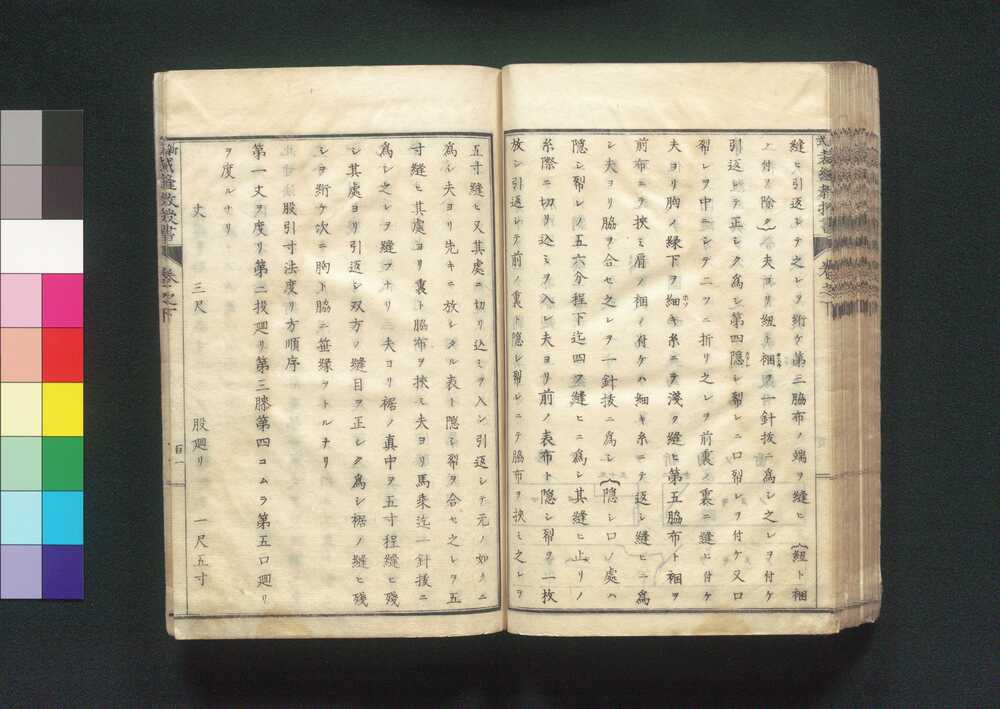 縫ヒ引返シテ之レヲ絎ケ第三脇布ノ端ヲ縫ヒ(紐ト裀
ノ付ル除ク)夫ヨリ紐ト裀ヲ一針拔ニ爲シ之レヲ付ケ
引返シテ正シク爲シ第四隱シ裂レニ口裂レヲ付ケ又口
裂レヲ中ニシテ二ツニ折リ之レヲ前裏ノ裏ニ縫ヒ付ケ
夫ヨリ胸ノ緣下ヲ細キ糸ニテ淺ク縫ヒ第五脇布ト裀ヲ
前布ニテ挾ミ肩ノ裀ノ付ケハ細キ糸ニテ返シ縫ヒニ爲
シ夫ヨリ脇ヲ合セ之レヲ一針拔ニ爲シ(隱シ口ノ處ハ
隱シ裂レノ五六分程下迄四ツ縫ヒニ爲シ其縫ヒ止リノ
糸際ニ切リ込ミヲ入レ夫ヨリ前ノ表布ト隱シ裂ヲ一枚
放シ引返シテ前ノ裏ト隱シ裂レニテ脇布ヲ挾ミ之レヲ
五寸縫ヒ又其處ニ切リ込ミヲ入レ引返シテ元ノ如クニ
爲シ夫ヨリ先キニ放レタル表ト隱シ裂ヲ合セ之レヲ五
寸縫ヒ其處ヨリ裏ト脇布ヲ挾ミ夫ヨリ馬乘迄一針拔ニ
爲シ之レヲ縫フナリ)夫ヨリ裾ノ真中ヲ五寸程縫ヒ殘
シ其處ヨリ引返シ双方ノ縫目ヲ正シク爲シ裾ノ縫ヒ殘
シヲ絎ケ次ニ胸下脇ニ笹緣ヲトルナリ
股引寸法度リ方順序
第一丈ヲ度リ第二股廻リ第三膝第四コムラ第五口廻リ
ヲ度ルナリ
丈 三尺 股廻リ 一尺五寸
裁縫教授書
卷之下
百一